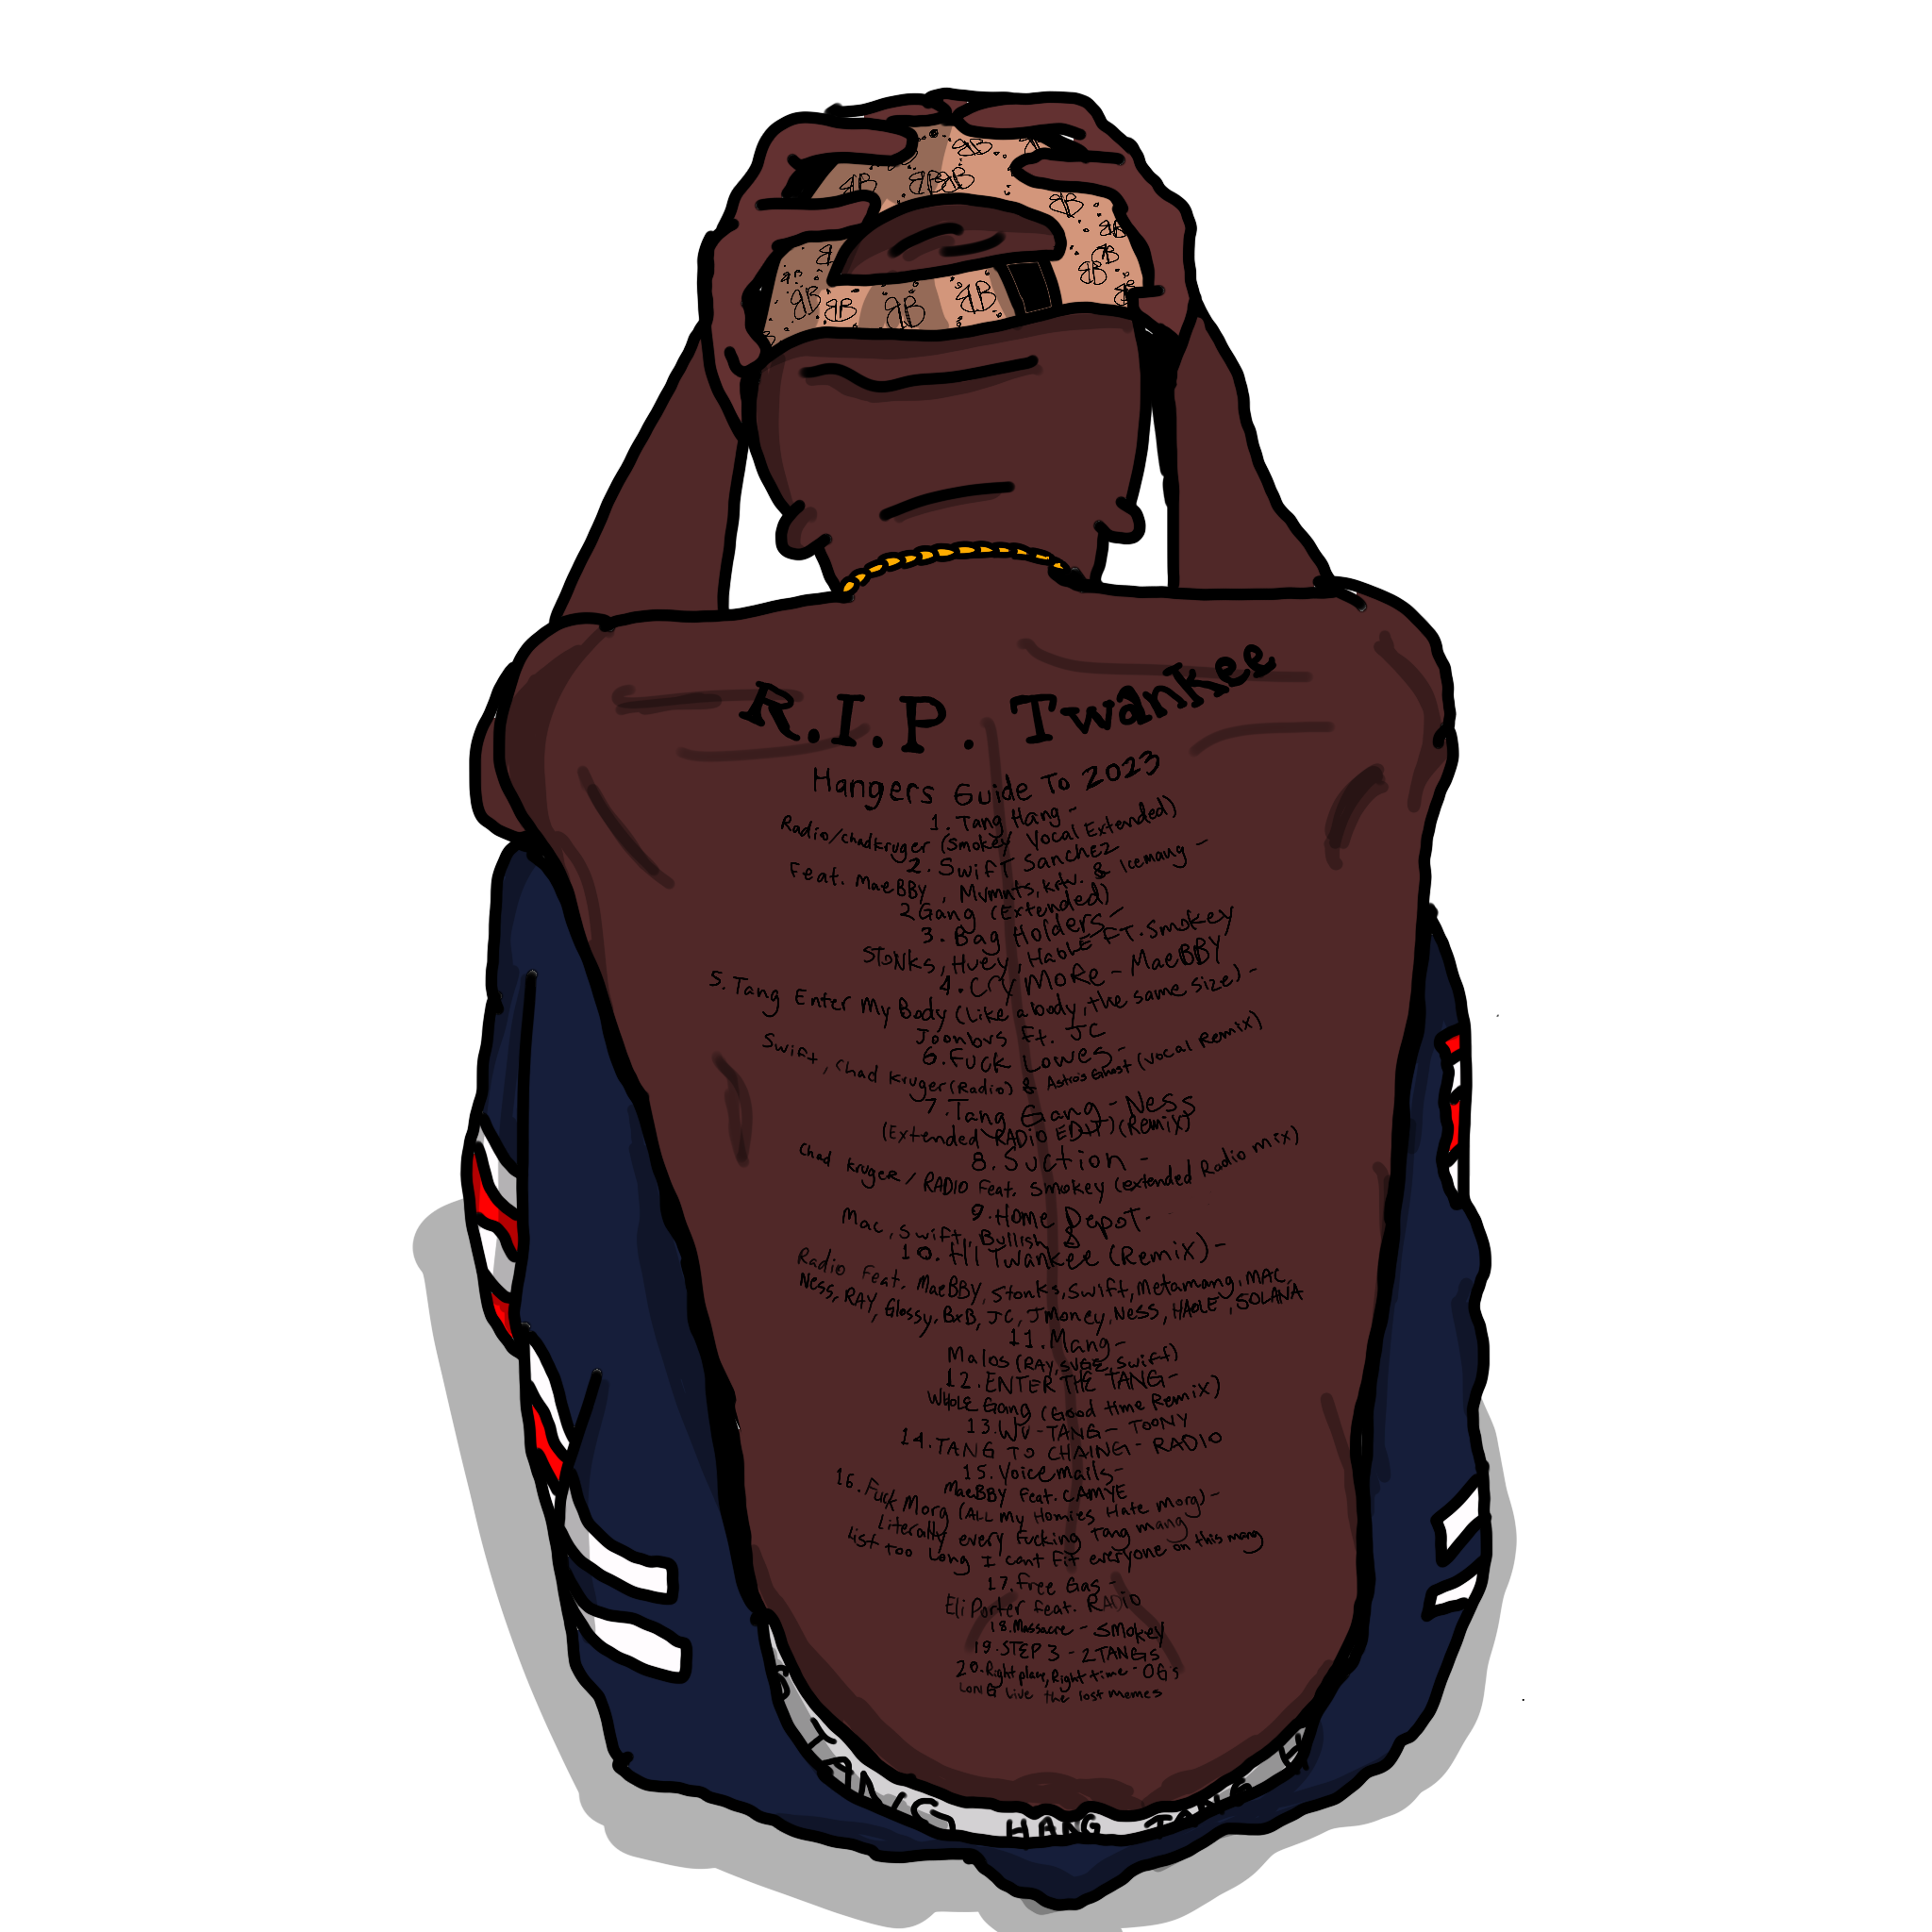 R.I.P. Twankee
Hangers Guide To 2023
1. Tang Hang -
Radio/chadkruger (Smokey Vocal Extended)
2. Swift Sanchez
Feat. MaeBBy, Mvmnts, krtv. & Icemang -
2 Gang (Extended)
3. Bag Holders -
STONKS, Huey, Haole FT. Smokey
4. Cry More - MaeBBY
5. Tang Enter My Body (like a body, the same size) -
Joonbvs Ft. JC
6. Fuck Lowes -
Swift, Chad Kruger (Radio) & Astro's Ghost (Vocal Remix)
7. Tang Gang - Ness
(Extended RADIO EDIT) (Remix)
8. Suction -
Chad Kruger / RADIO Feat. Smokey (extended Radio mix)
9. Home Depot -
Mac, Swift, Bullish &
10. HI Twankee (Remix) -
Radio Feat. MaeBBY, Stonks, Swift, Metamang, MAC,
Ness, RAY, Glossy, BxB, JC, JMoney, Ness, HAOLE, SOLANA
11. Mang -
Malos (RAY, SUGE, Swift)
12. ENTER THE TANG -
WHOLE Gang (Good time Remix)
13. WU-TANG - TOONY
14. TANG TO CHAING - RADIO
15. Voicemails -
MaeBBY feat. CAMYE
16. Fuck Morg (ALL my Homies Hate Morg) -
Literally every fucking Tang mang
list too long I cant Fit everyone on this mang
17. Free Gas -
Eli Porter feat. RADIO
18. Massacre - Smokey
19. STEP 3 - 2TANGS
20. Right place, Right time - OGs
LONG Live the lost memes
TANG HANG